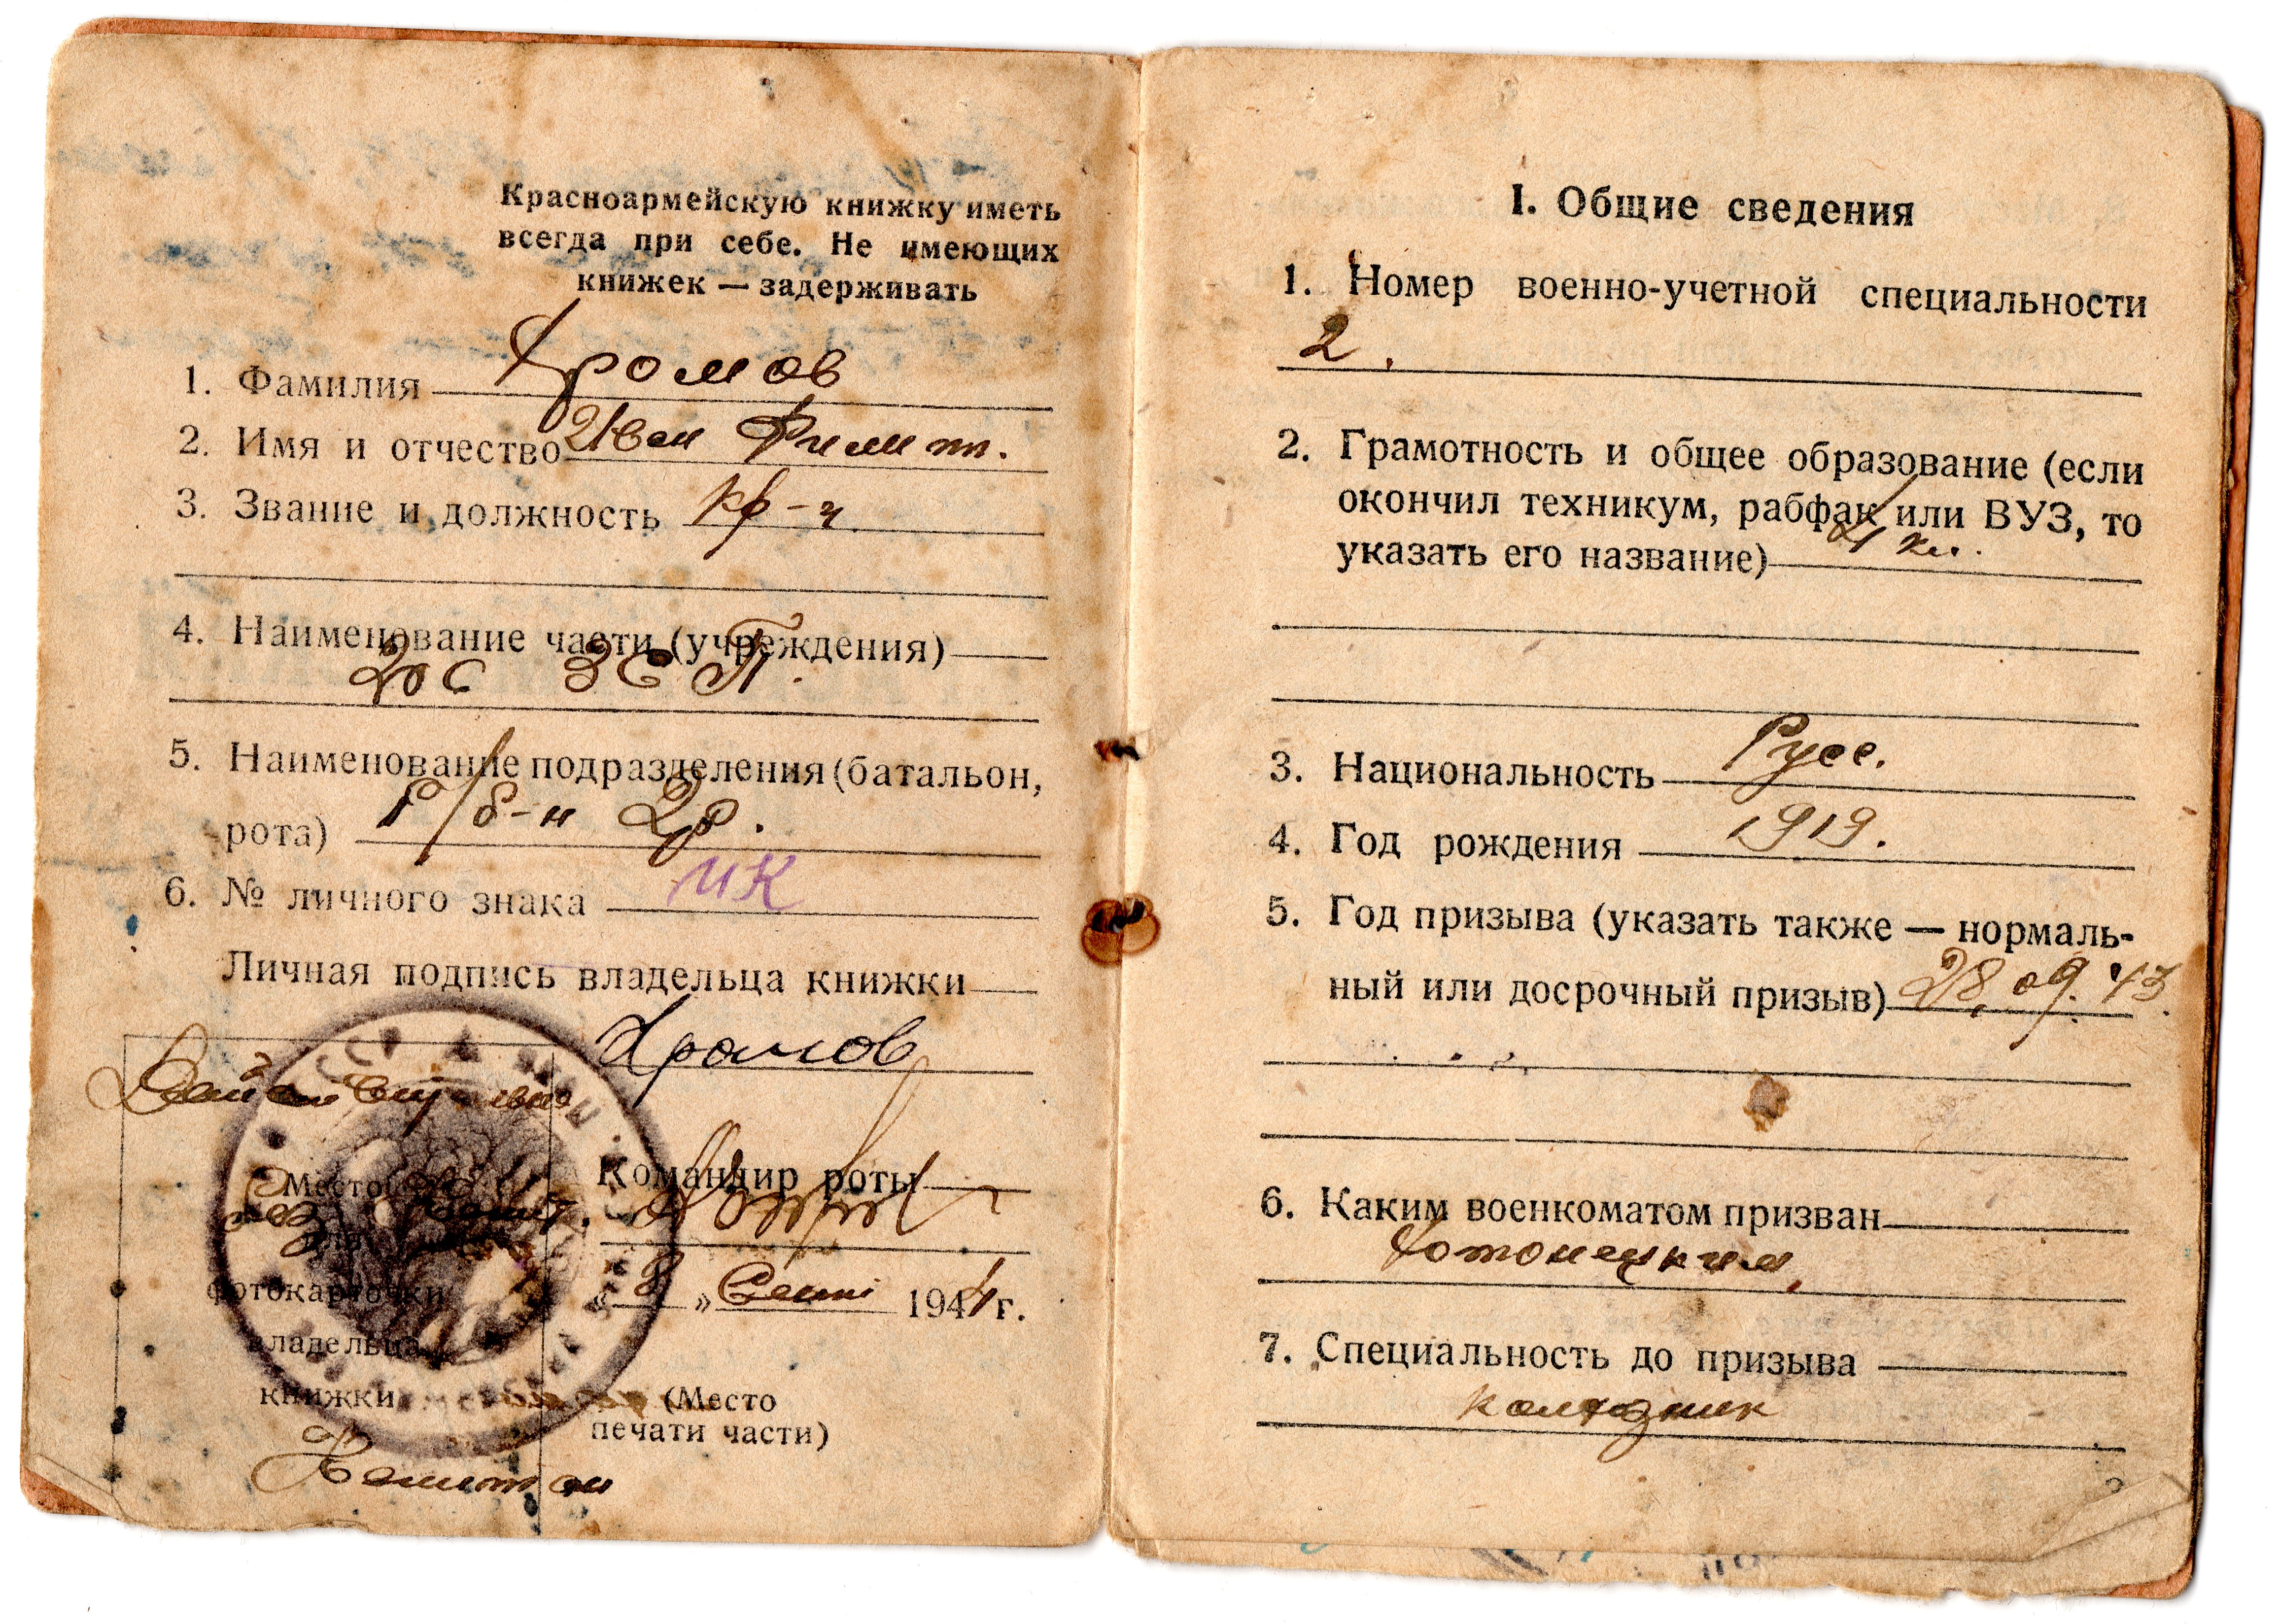 Красноармейскую книжку иметь
всегда при себе. Не имеющих
книжек — задерживать
1. Фамилия Хромов
2. Имя и отчество Иван
3. Звание и должность кр-ц
4. Наименование части (учреждения)
ЗСП.
5. Наименование подразделения (батальон,
рота) б-н 2р.
6. № личного знака
Личная подпись владельца книжки
Хромов
Действительно
без
Место
для
фотокарточки
владельца
книжки
Капитан
Командир роты
«8» Сент 1944 г.
(Место
печати части)
I. Общие сведения
1. Номер военно-учетной специальности
2.
2. Грамотность и общее образование (если
окончил техникум, рабфак или ВУЗ, то
указать его название) 4 кл.
3. Национальность Русс.
4. Год рождения 1919.
5. Год призыва (указать также — нормаль-
ный или досрочный призыв) 28.09.43
6. Каким военкоматом призван
Хотонецким
7. Специальность до призыва
колхозник